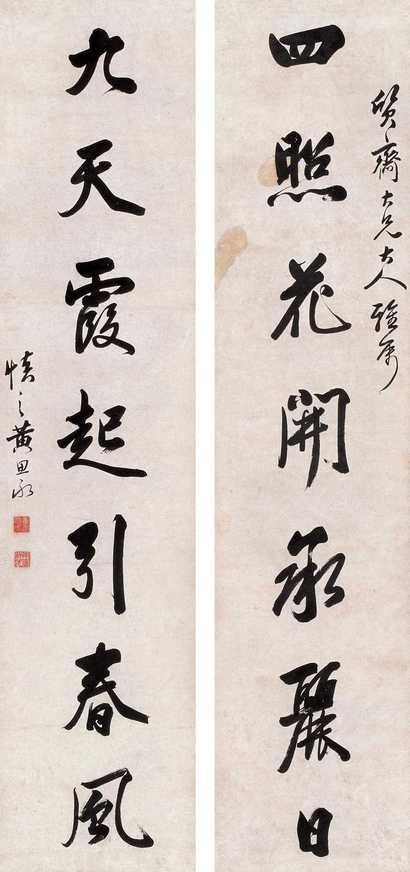 質齋大兄大人雅屬
四照花開承麗日
九天霞起引春風
慎之黃思永